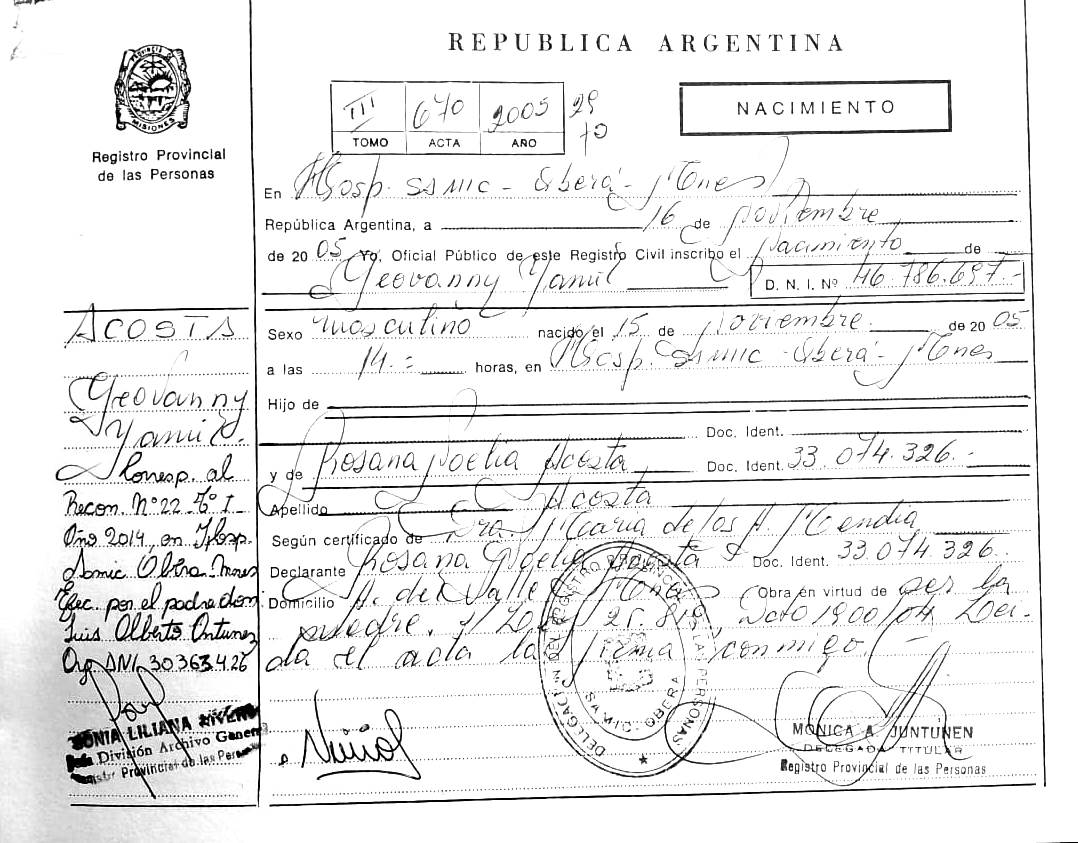 REPUBLICA ARGENTINA
PROVINCIA DE
MISIONES
Registro Provincial
de las Personas
III 670 2005 29
TOMO ACTA AÑO
NACIMIENTO
En Hosp. SAMIC - Oberá - Mnes
República Argentina, a 16 de Noviembre
de 2005 Yo, Oficial Público de este Registro Civil inscribo el Nacimiento de
Geovanny Yamil D. N. I. Nº 46.786.697.-
Sexo masculino nacido el 15 de Noviembre de 2005
a las 14.= horas, en Hosp. SAMIC - Oberá - Mnes
Hijo de
Doc. Ident.
y de Rosana Noelia Acosta Doc. Ident. 33.074.326.-
Apellido Acosta
Según certificado de Dra. Maria de los A. Mendia
Declarante Rosana Noelia Acosta Doc. Ident. 33.074.326.
Domicilio A. del Valle - Mnes Obra en virtud de ser la
madre. y Dcto 1900/04. Leí-
da el acta la firma conmigo.
ACOSTA
Geovanny
Yamil.
Corresp. al
Recon. Nº 22 Tº I
Año 2014, en Hosp.
Samic Oberá Mnes
Efec. por el padre don
Luis Alberto Antunez
Arg. DNI 30.363.426
SONIA LILIANA RIVERO
Jefa División Archivo General
Registro Provincial de las Personas
DELEGACIÓN DEL REGISTRO PROVINCIAL DE LAS PERSONAS
S.A.M.I.C. - OBERA
MONICA A. JUNTUNEN
DELEGADA TITULAR
Registro Provincial de las Personas